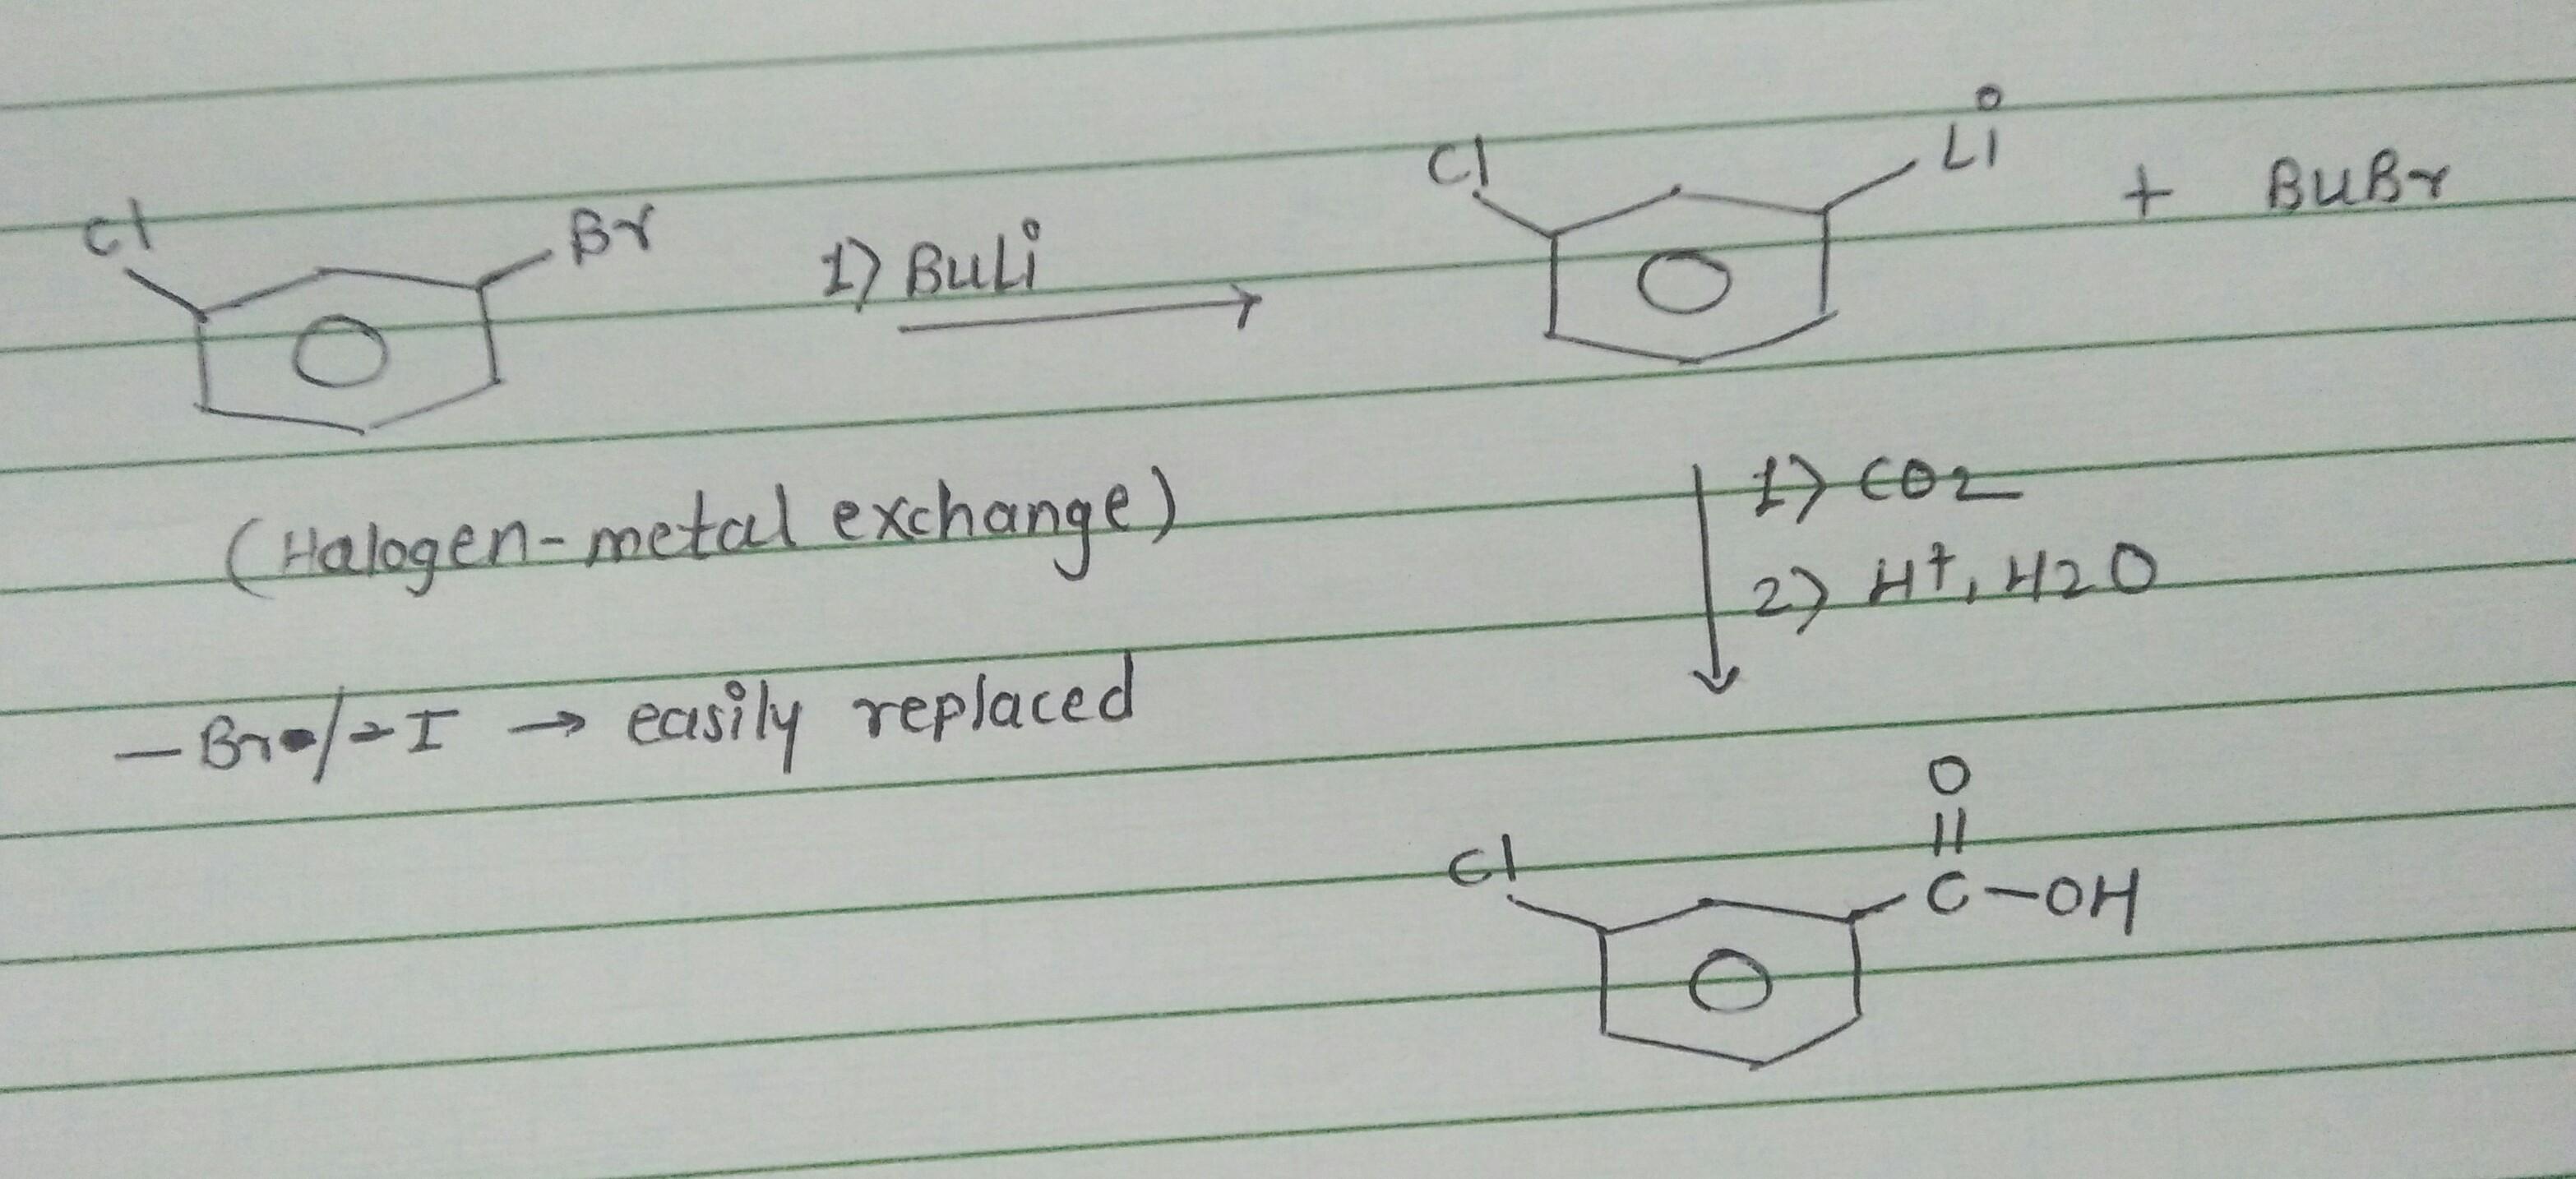 Cl Br 1) BuLi Cl Li + BuBr
(Halogen-metal exchange)
1) CO2
2) H+, H2O
- Br/-I → easily replaced
O
Cl C-OH